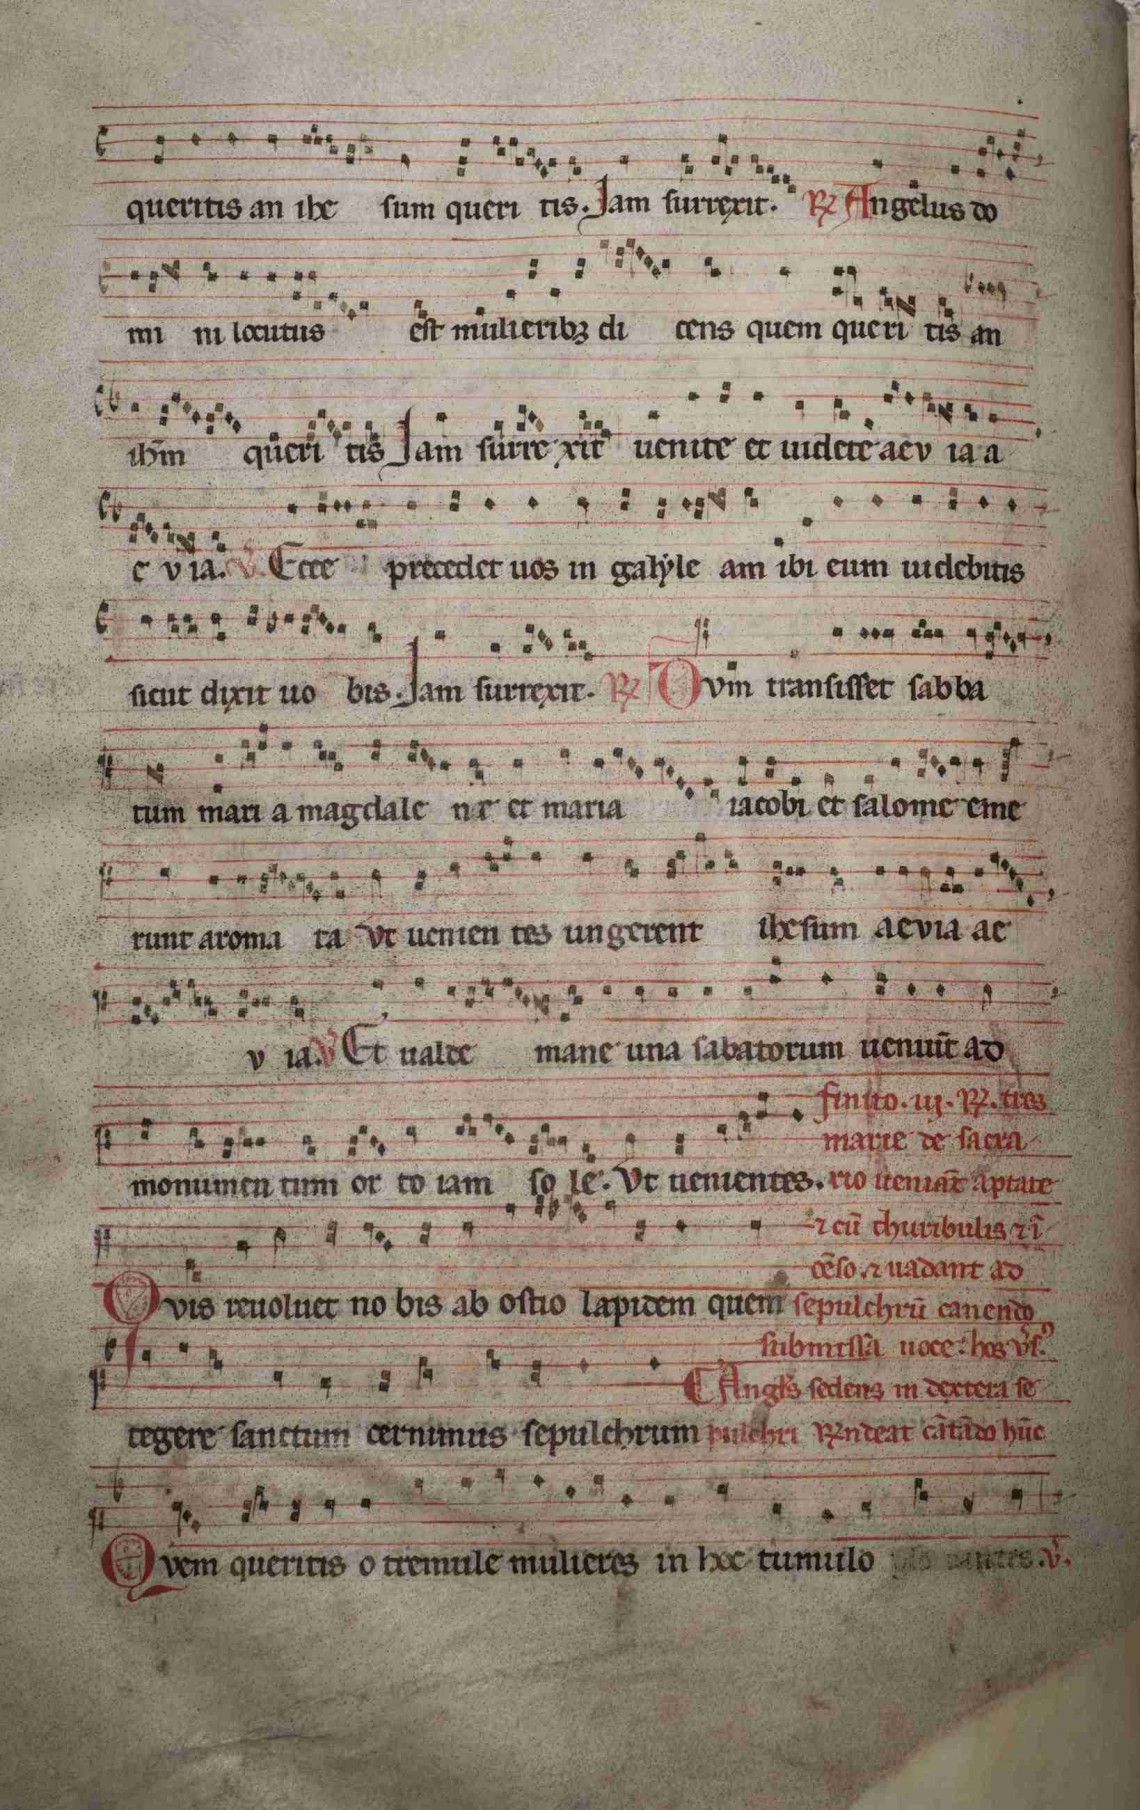 queritis an ihe sum queri tis. Iam surrexit. ℟ Angelus do
mi ni locutus est mulieribꝫ di cens quem queri tis an
ihm̄ queri tis Iam surre xit uenite et uidete aev ia a
e v ia. ℣. Ecce precedet uos in galyle am ibi eum uidebitis
sicut dixit uo bis. Iam surrexit. ℟ Dvm transisset sabba
tum mari a magdale ne et maria iacobi et salome eme
runt aroma ta Vt uenien tes ungerent ihesum aevia ae
v ia. ℣ Et ualde mane una sabatorum ueniūt ad
finito. iij. ℟. tres
marie de sacra
monumen tum or to iam so le. Vt uenientes. rio ueniāt aptate
⁊ cū thuribulis ⁊ ī
cēso. ⁊ uadant ad
Qvis reuoluet no bis ab ostio lapidem quem sepulchrū canendo
submissa uoce. hos
Angl's sedens in dextera se
tegere sanctum cernimus sepulchrum pulchri ℟ndeat cātādo hūc
Qvem queritis o tremule mulieres in hoc tumulo ℣.